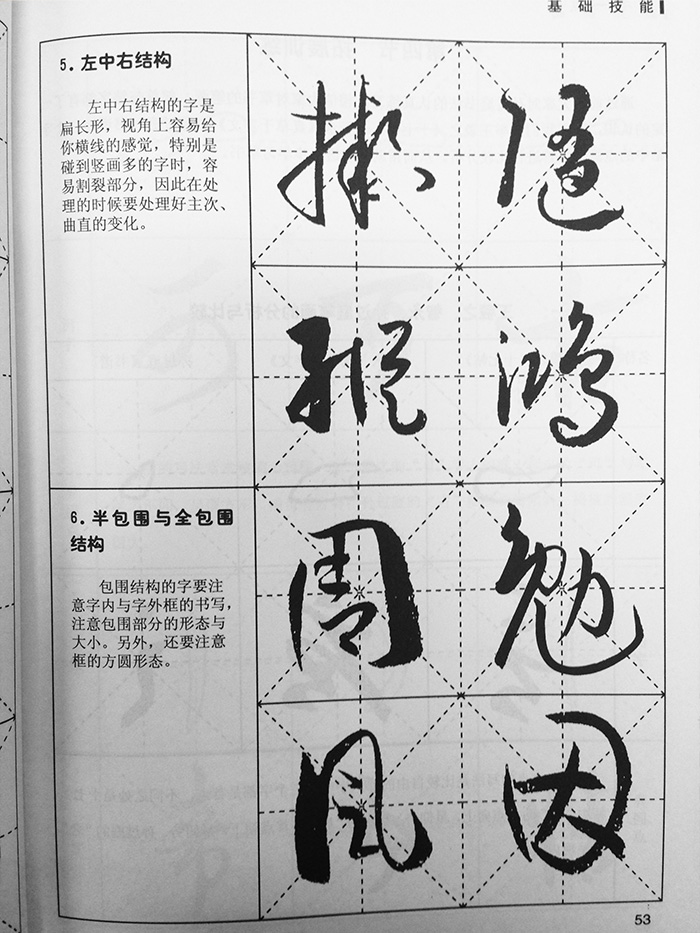 基础技能
5.左中右结构
左中右结构的字是
扁长形，视角上容易给
你横线的感觉，特别是
碰到竖画多的字时，容
易割裂部分，因此在处
理的时候要处理好主次、
曲直的变化。
鸿
6.半包围与全包围
结构
包围结构的字要注
意字内与字外框的书写，
注意包围部分的形态与
大小。另外，还要注意
框的方圆形态。
周 勉
风 因
53